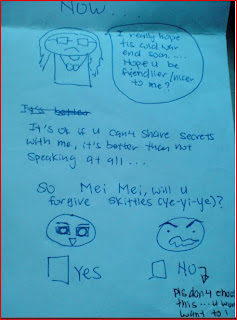 Now...
I really hope
tis cold war
end soon....
Hope u be
friendlier/nicer
to me?
It's better
It's ok if u can't share secrets
with me, it's better than not
speaking at all...
So Mei Mei, will u
forgive Skittles (ye-yi-ye)?
Yes
No
Pls don't choose
this... u won't
want to!